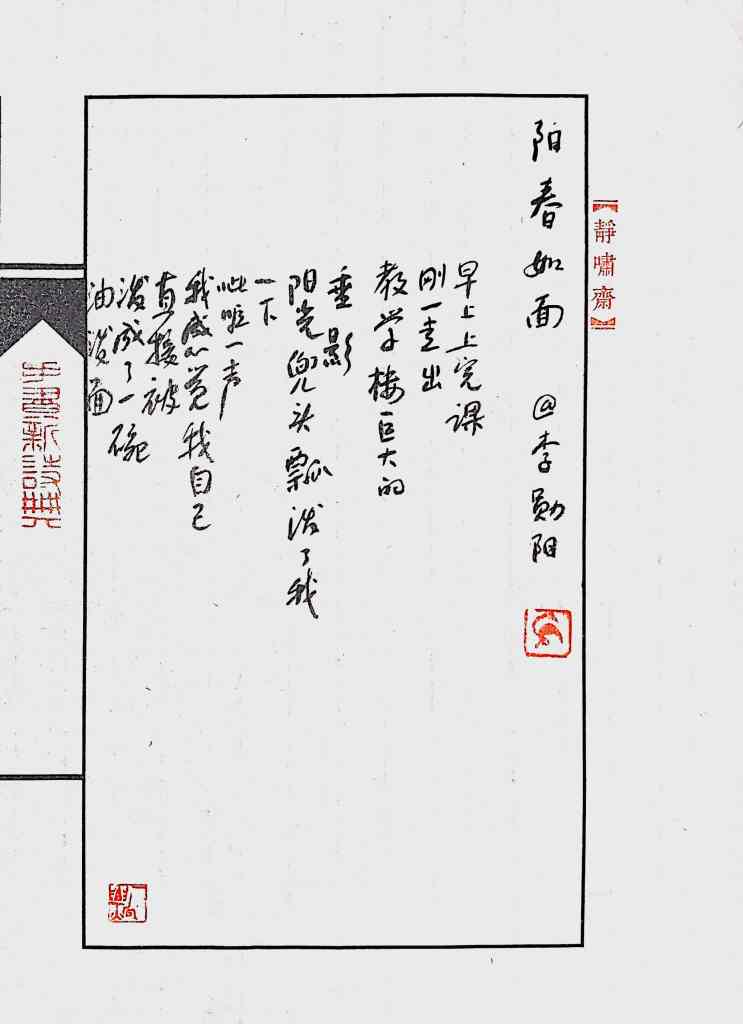 【靜嘯齋】
阳春如面 @李勋阳
早上上完课
刚一走出
教学楼巨大的
垂影
阳光兜头瓢泼了我
一下
呲啦一声
我感觉我自己
直接被
泼成了一碗
油泼面
中國新詩典